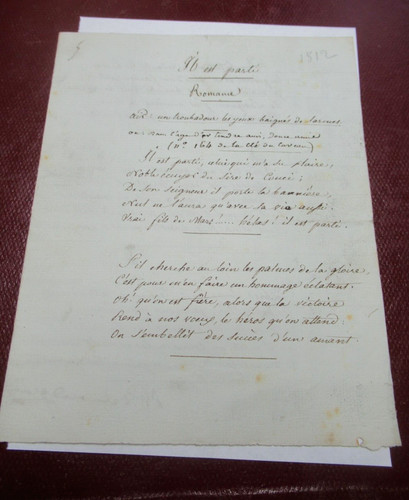 1812
Il est parti
Romance
Air: un troubadour les yeux baignés de larmes
ou: dans l'age d'or tendre ami, douce amie
(N.º 164 de la clé du caveau)
Il est parti, celui qui m'a su plaire,
Noble écuyer du Sire de Couci;
De son seigneur il porte la bannière,
Nul ne l'aura qu'avec sa vie aussi.
Vrai fils de Mars!.... hélas! il est parti.
S'il cherche au loin les palmes de la gloire,
C'est pour m'en faire un hommage éclatant.
Oh! qu'on est fière, alors que la victoire
Rend à nos voeux, le héros qu'on attend:
On s'embellit des succès d'un amant.